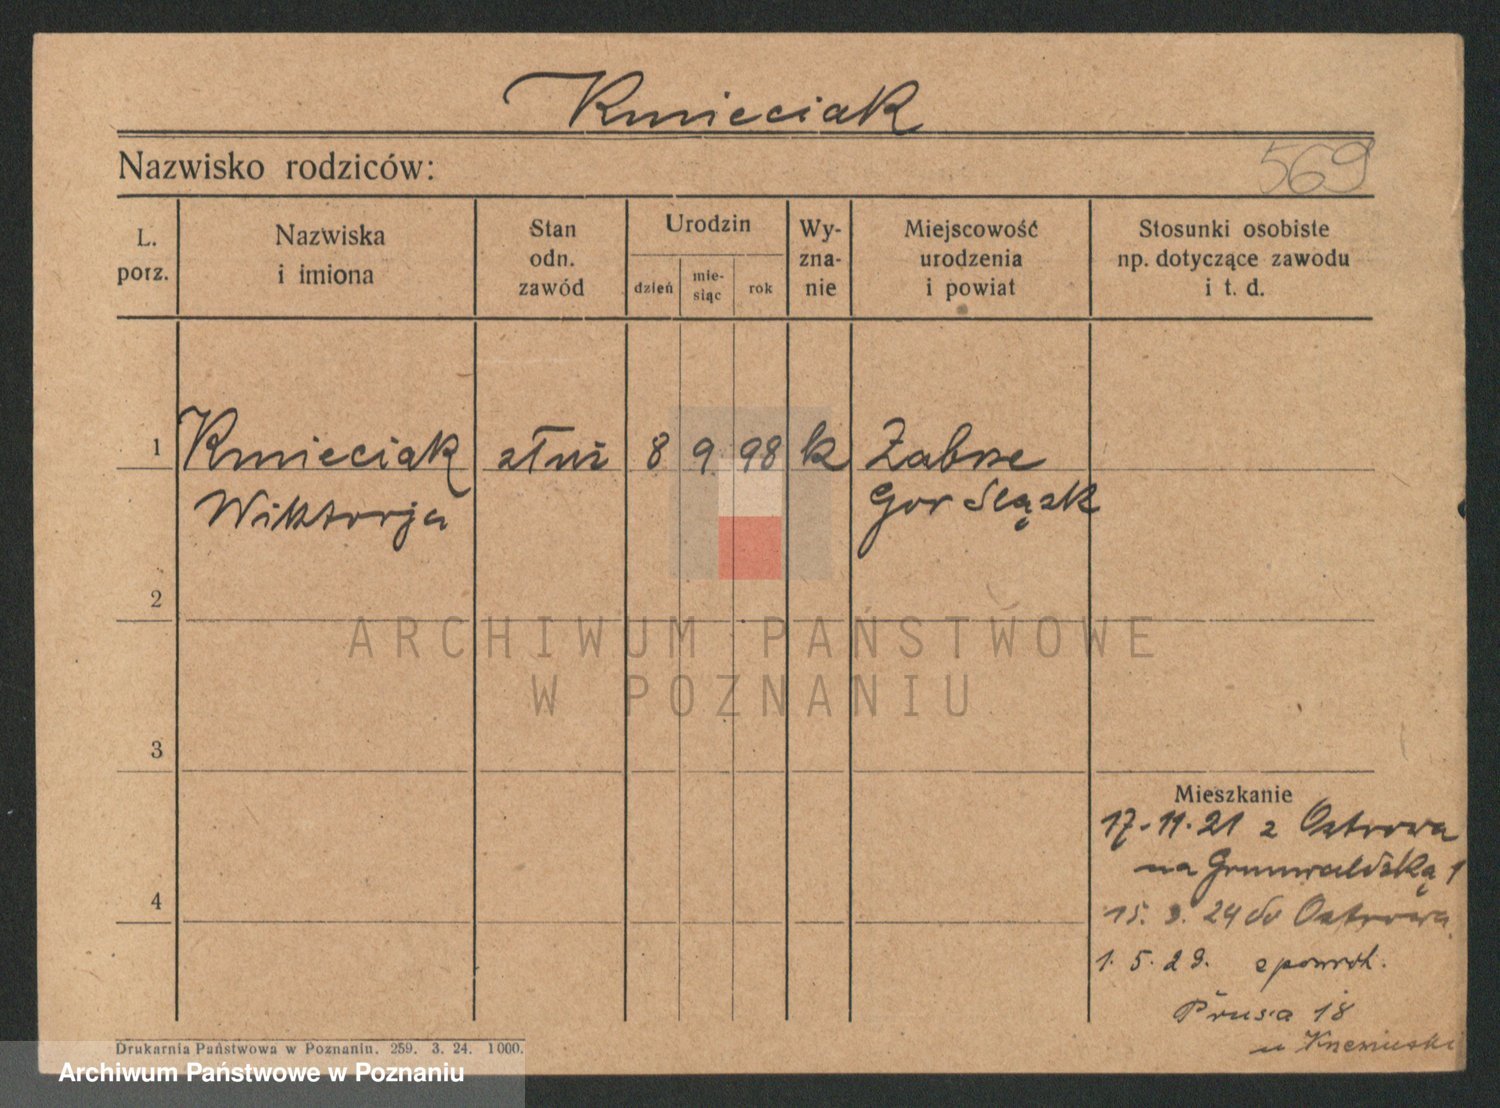 Kmieciak
Nazwisko rodziców:
569
L. porz.
Nazwiska i imiona
Stan odn. zawód
Urodzin
dzień
mie- siąc
rok
Wy- zna- nie
Miejscowość urodzenia i powiat
Stosunki osobiste np. dotyczące zawodu i t. d.
1 Kmieciak 8 9 98 k Zabrze
Wiktorja Gór Śląsk
2
ARCHIWUM PAŃSTWOWE
W POZNANIU
3
Mieszkanie
17-11-21 z Ostrowa
na Grunwaldzką 1
4
15. 3. 24 do Ostrowa
1. 5. 29. z powrot.
Prusa 18
u
Drukarnia Państwowa w Poznaniu. 259. 3. 24. 1000.
Archiwum Państwowe w Poznaniu